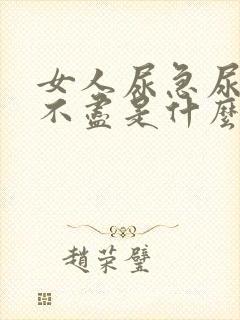 女人尿急尿
不盡是什麽
趙荣璧